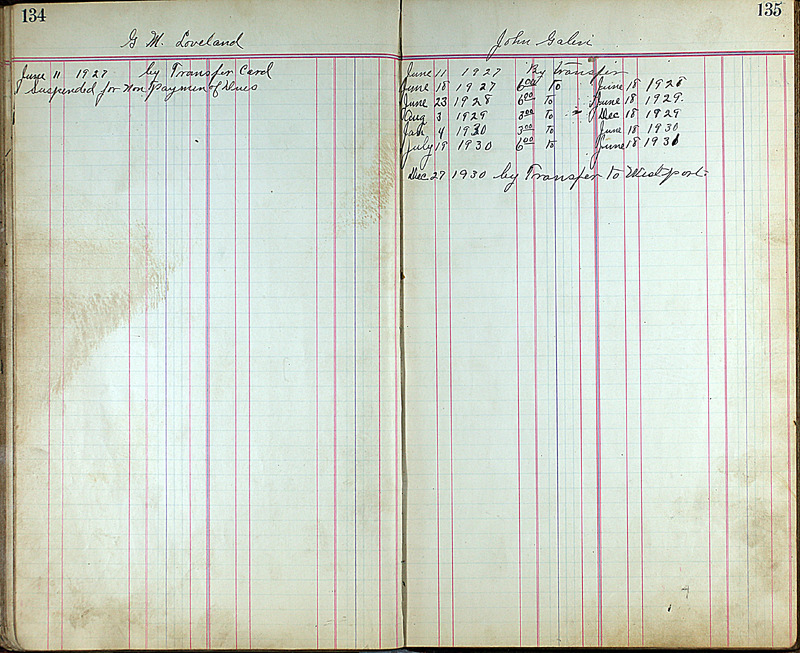 134
G. M. Loveland
June 11 1927 by Transfer Card
Suspended for Non Paymen of Dues
135
John Galen
June 11 1927 By transfer
June 18 1927 6 00 To June 18 1928
June 23 1928 6 00 To June 18 1929.
Aug 3 1929 3 00 To Dec 18 1929
Jan 4 1930 3 00 to June 18 1930
July 19 1930 6 00 to June 18 1931
Dec 27 1930 by Transfer to Westport.